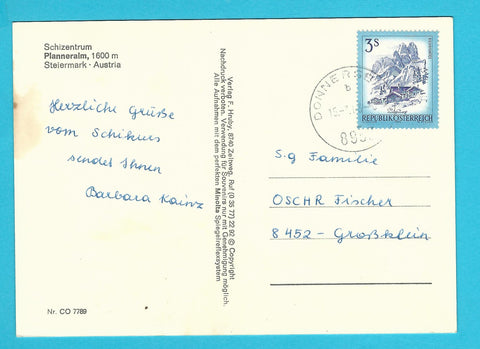 Schizentrum
Planneralm, 1600 m
Steiermark · Austria
Herzliche Grüße
vom Schikurs
sendet Ihnen
Barbara Kainz
Nr. CO 7789
Verlag F. Hruby, 8740 Zeltweg, Ruf (0 35 77) 22 92 © Copyright
Nachdruck verboten. Verwendung für Souvenirs nur mit Genehmigung möglich.
Alle Aufnahmen mit dem perfekten Minolta Spiegelreflexsystem
3s
REPUBLIK ÖSTERREICH
DONNERS
S.g Familie
OSCHR Fischer
8452 - Großklein